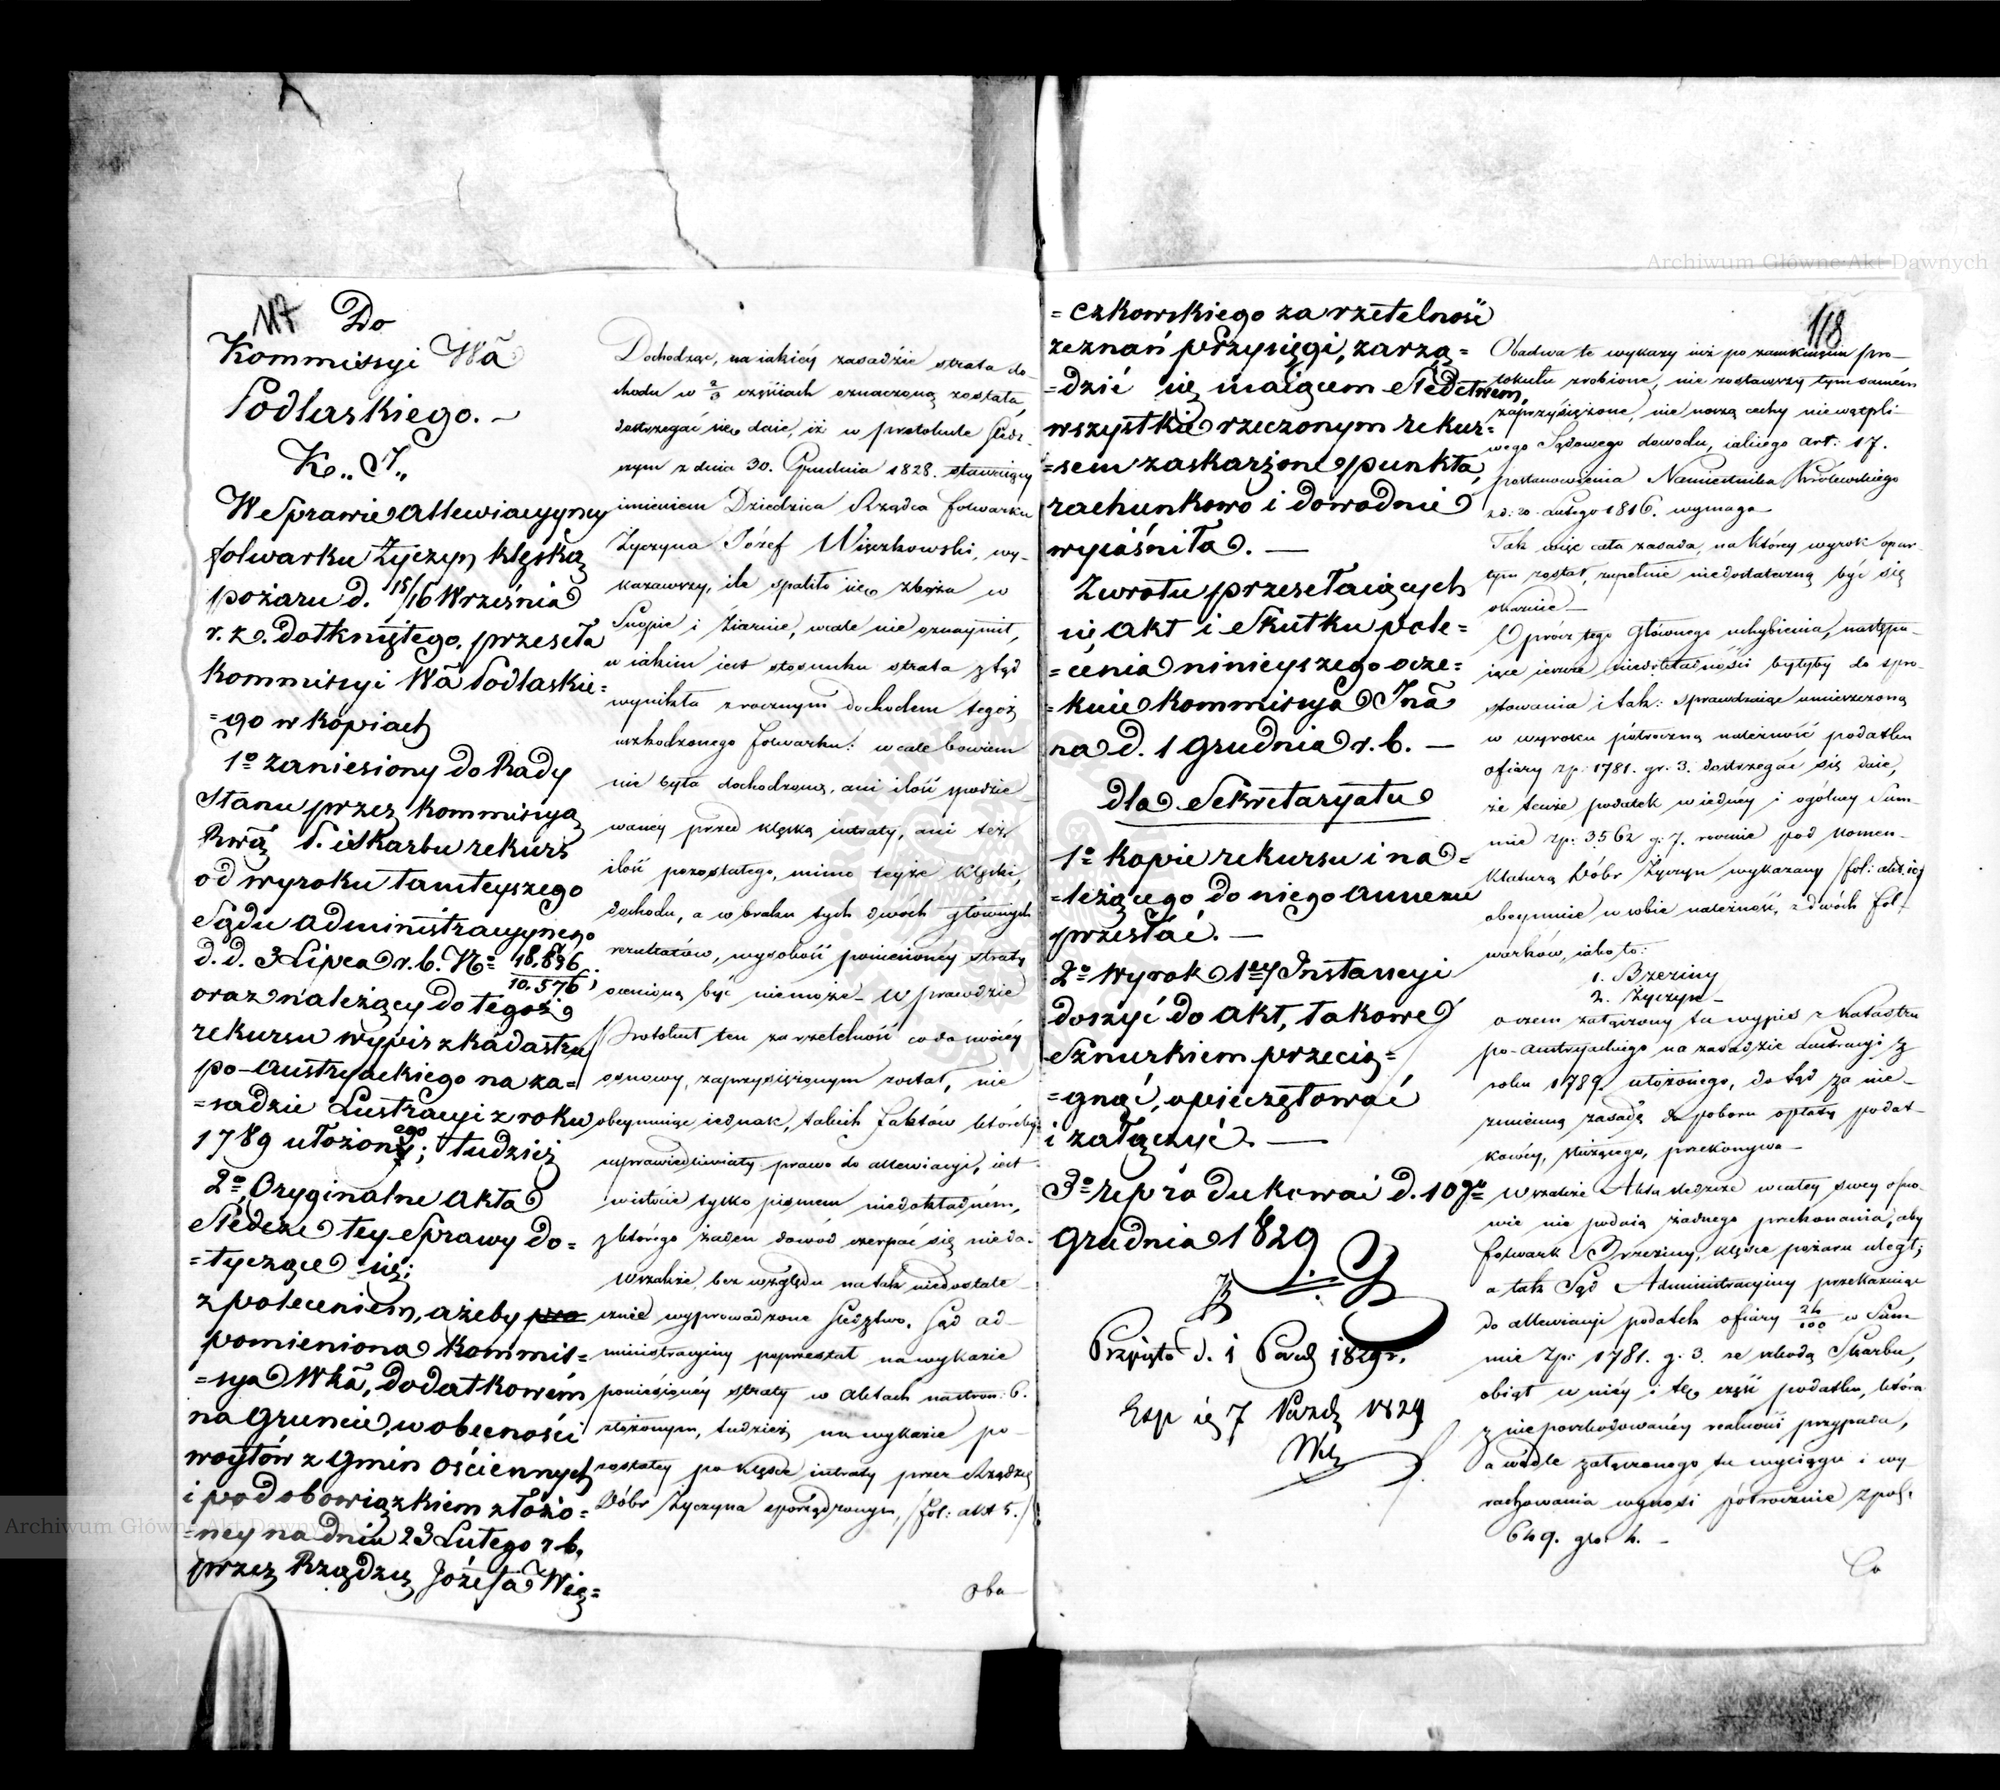 117
Do
Kommissyi Wã
Podlaskiego. –
K„ J„
W Sprawie allewiacyyney
folwarku Życzyn klęską
pożaru d. 15/16 Września
r. z. dotkniętego, przeseła
Kommissyi Wã Podlaskie=
=go w kopiach
1º zaniesiony do Rady
Stanu przez Kommisyą
Rwą P. i Skarbu rekurs
od wyroku tamteyszego
Sądu administracyynego
d. d. 3 Lipca r. b. Nº 18.896/10.576,
oraz należący do tegoż
rekursu wypis z kadastru
po-Austryackiego na za=
=sadzie Lustracyi z roku
1789 ułożonego; tudzież
2º Oryginalne akta
Śledcze tey Sprawy do=
=tyczące się;
z poleceniem, ażeby
pomieniona Kommis=
=sya Wkã, dodatkowém
na gruncie, w obecności
woytów z Gmin ościennych
i pod obowiązkiem złożo=
=ney na dniu 23 Lutego r. b.
przez Rządzcę Józefa Wię=
Dochodząc, na iakiéy zasadzie strata do-
chodu w 2/3 częściach oznaczoną została,
dostrzegać się daie, iż w protokule śled-
czym z dnia 30. Grudnia 1828. stawaiący
imieniem Dziedzica Rządca folwarku
Życzyna Józef Więczkowski, wy-
kazawszy, ile spaliło się zboża w
Snopie i Ziarnie, wcale nie oznaymił,
w iakim iest stosunku strata ztąd
wynikła z rocznym dochodem tegoż
uszkodzonego folwarku: wcale bowiem
nie była dochodzoną, ani ilość spodzie-
wanéy przed klęską intraty, ani też
ilość pozostałego, mimo teyże klęski,
dochodu, a w braku tych dwóch głównych
rezultatów, wysokość poniesionéy straty
ocenioną być niemoże – W prawdzie
Protokuł ten za rzetelność co do swoiéy
osnowy, zaprzysiężonym został, nie
obeymuiąc iednak, takich faktów któreby
usprawiedliwiały prawo do allewiacyi, iest
w istocie tylko pismem niedokładném,
z którego żaden dowód czerpać się nieda.
Wszakże bez względu na tak niedostate-
cznie wyprowadzone śledztwo, Sąd ad-
ministracyiny poprzestał na wykazie
poniesionéy straty w aktach na stron: 6.
złożonym, tudzież na wykazie po-
zostałey po klęsce intraty przez Rządzcę
Dóbr Życzyna sporządzonym, (fol: akt 5.)
Oba-
=czkowskiego za rzetelność
zeznań przysięgi, zarzą=
=dzić się maiącem Śledztwem,
wszystkie rzeczonym rekur=
=sem zaskarżone punkta,
rachunkowo i dowodnie
wyiaśniła. —
Zwrotu przesełaiących
się akt i Skutku pole=
=cenia ninieyszego ocze=
=kuie Kommissya Jnã
na d. 1 Grudnia r. b. —
dla Sekretaryatu
1º Kopie rekursu i na=
=leżącego do niego annexu
przesłać. —
2º Wyrok 1éy Instancyi
doszyć do akt, takowe
Sznurkiem przecią=
=gnąć, opieczętować
i załączyć. —
3º reprodukować d. 10go
Grudnia 1829
Przyięto d. 1 Paźd 1829 r.
Exp ię 7 Paźdz 1829
118
Obadwa te wykazy iuż po zamknięciu pro-
tokułu zrobione, nie zostawszy tym samém
zaprzysiężone, nie noszą cechy niewątpli-
wego Sądowego dowodu, iakiego art: 17.
postanowienia Namiestnika Królewskiego
z d: 20. Lutego 1816. wymaga –
Tak więc cała zasada, na któréy wyrok opar-
tym został, zupełnie niedostateczną być się
okazuie –
Oprócz tego Głównego uchybienia, następu-
iące ieszcze niedokładności byłyby do spro-
stowania i tak: Sprawdzaiąc umieszczoną
w wyroku półroczną należność podatku
ofiary zp: 1781. gr: 3. dostrzegać się daie,
że tenże podatek w iednéy i ogólney Sum-
mie zp: 3562 g: 7. rocznie pod nomen-
klaturą Dóbr Życzyn wykazany (fol: akt. 10)
obeymuie w sobie należność, z dwóch fol-
warków, iako to:
1. Brzeziny
2. Życzyn –
o czem załączony tu wypis z Katastru
po-Austryackiego na zasadzie Lustracyi z
roku 1789. ułożonego, dotąd za nie-
zmienną zasadę do poboru opłaty podat-
kowéy, służącego, przekonywa –
Wszakże Akta śledcze w całey swey osno-
wie nie podaią żadnego przekonania, aby
folwark Brzeziny, klęsce pożaru uległ;
a tak Sąd Administracyiny przekazuiąc
do allewiacyi podatek ofiary 24/100 w Sum-
mie Zp: 1781. g: 3. ze szkodą Skarbu,
obiął w niéy i tę część podatku, która
z nie poszkodowanéy realności przypada,
a wedle załączonego tu wyciągu i wy-
rachowania wynosi półrocznie zpol:
649. gr: 4. –
Co
Archiwum Główne Akt Dawnych
Archiwum Główne Akt Dawnych